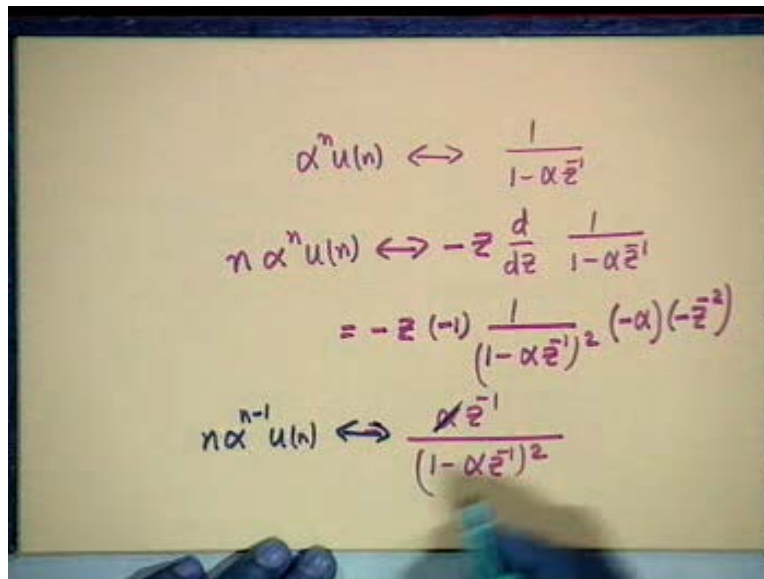 αⁿu(n) ⟷ 1/(1-αz⁻¹)
n αⁿu(n) ⟷ -z d/dz 1/(1-αz⁻¹)
= -z (-1) 1/(1-αz⁻¹)² (-α)(-z⁻²)
nαⁿ⁻¹u(n) ⟷ α̸z⁻¹/(1-αz⁻¹)²